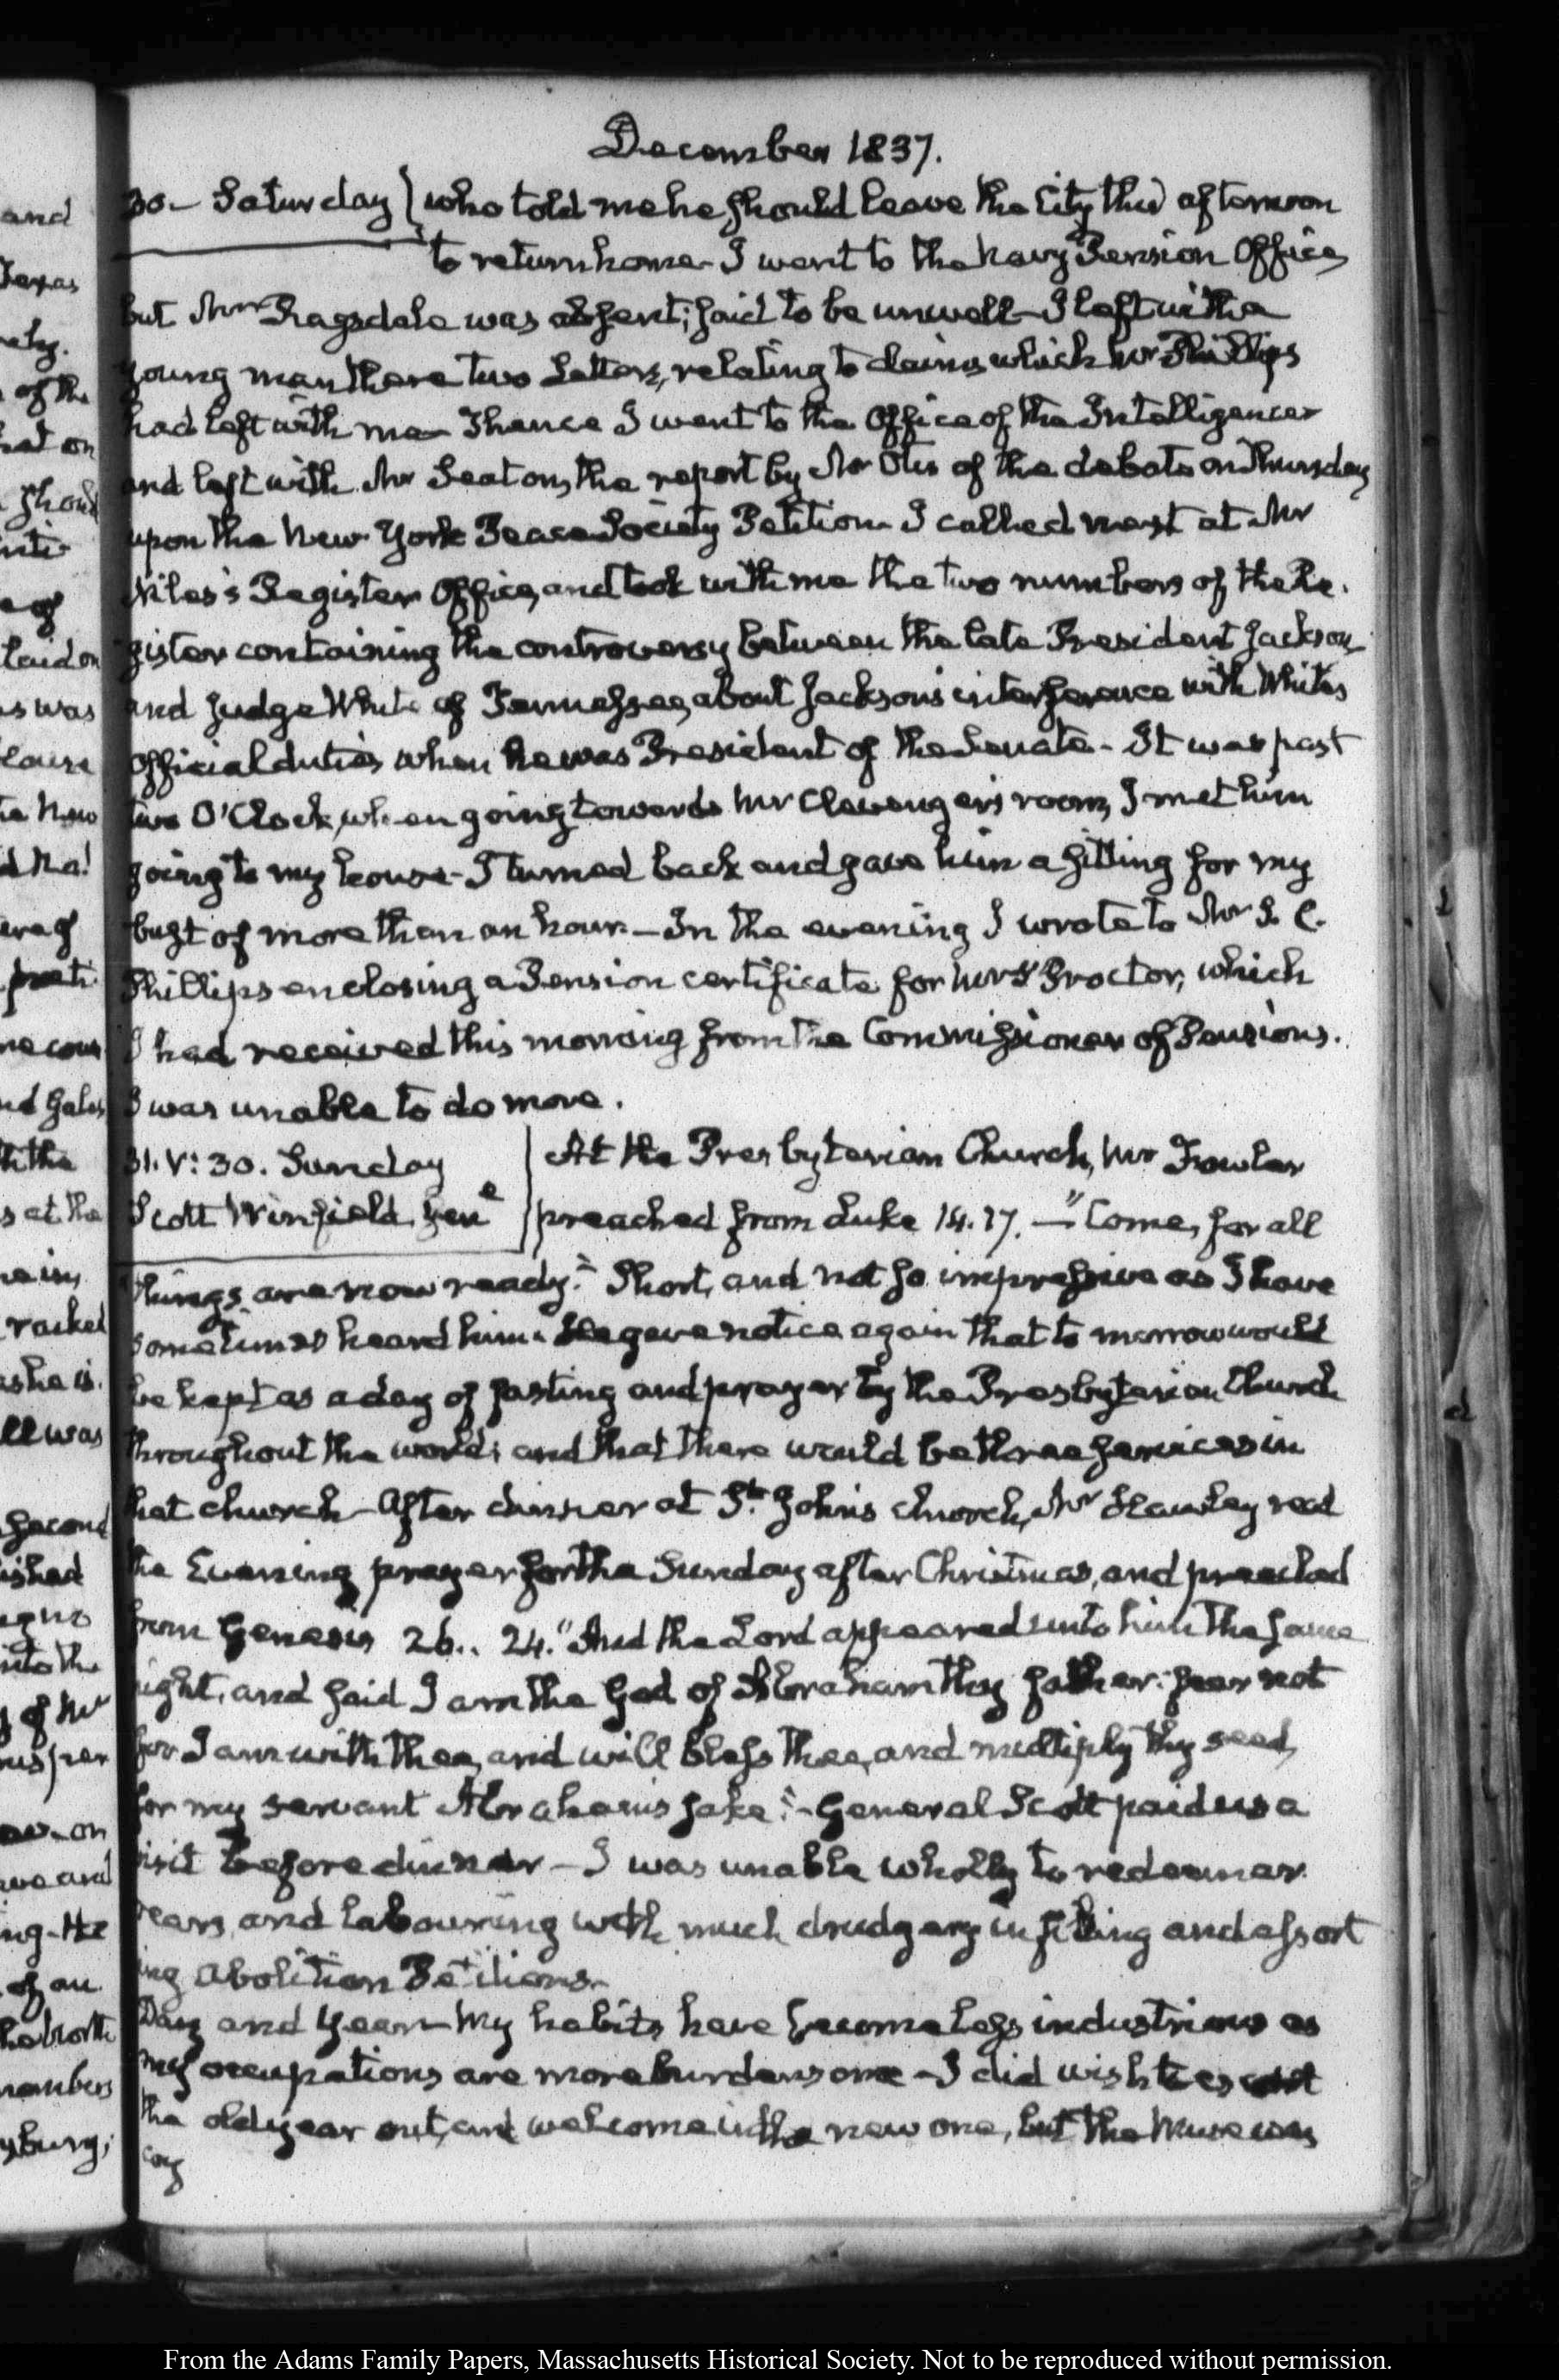 December 1837.
30. Saturday } who told me he should leave the City this afternoon
to return home. I went to the Navy Pension Office,
but Mr Ragsdale was absent; said to be unwell—I left with a
young man there two Letters, relating to claims which Mr Phillips
had left with me—Thence I went to the Office of the Intelligencer
and left with Mr Seaton, the report by Mr Otis of the debate on Thursday
upon the New York Peace Society Petition. I called next at Mr
Niles's Register Office, and took with me the two numbers of the Re-
gister containing the controversy between the late President Jackson
and Judge White of Tennessee, about Jackson's interference with White's
Official duties when he was President of the Senate—It was past
two O'Clock, when going towards Mr Clevenger's room, I met him
going to my house—I turned back and gave him a sitting for my
bust of more than an hour—In the evening I wrote to Mr S. C.
Phillips enclosing a Pension certificate for Mrs Proctor, which
I had received this morning from the Commissioner of Pensions.
I was unable to do more.
31. V: 30. Sunday At the Presbyterian Church, Mr Fowler
Scott Winfield Gen. preached from Luke 14. 17.—"Come, for all
things are now ready." Short, and not so impressive as I have
sometimes heard him. He gave notice again that to morrow would
be kept as a day of fasting and prayer by the Presbyterian Church
throughout the world; and that there would be three services in
that church—After dinner at St. John's church, Mr Hawley read
the Evening prayer for the Sunday after Christmas, and preached
from Genesis 26.. 24. "And the Lord appeared unto him the same
night, and said I am the God of Abraham thy father: fear not
for I am with thee, and will bless thee, and multiply thy seed,
for my servant Abraham's sake."—General Scott paid us a
visit before dinner—I was unable wholly to redeem ar-
rears, and labouring with much drudgery in filing and assort
ing Abolition Petitions.
Day and Year—My habits have become less industrious as
my occupations are more burdensome—I did wish to escort
the old year out, and welcome in the new one, but the Muse was
coy
and
Texas
ely.
of the
hat on
e of
laid on
as was
was
ne cons
nd Gales
th the
s at the
as he is.
ll was
second
ished
into the
of Mr
we and
ing-the
of an
numbers
sburg;
From the Adams Family Papers, Massachusetts Historical Society. Not to be reproduced without permission.